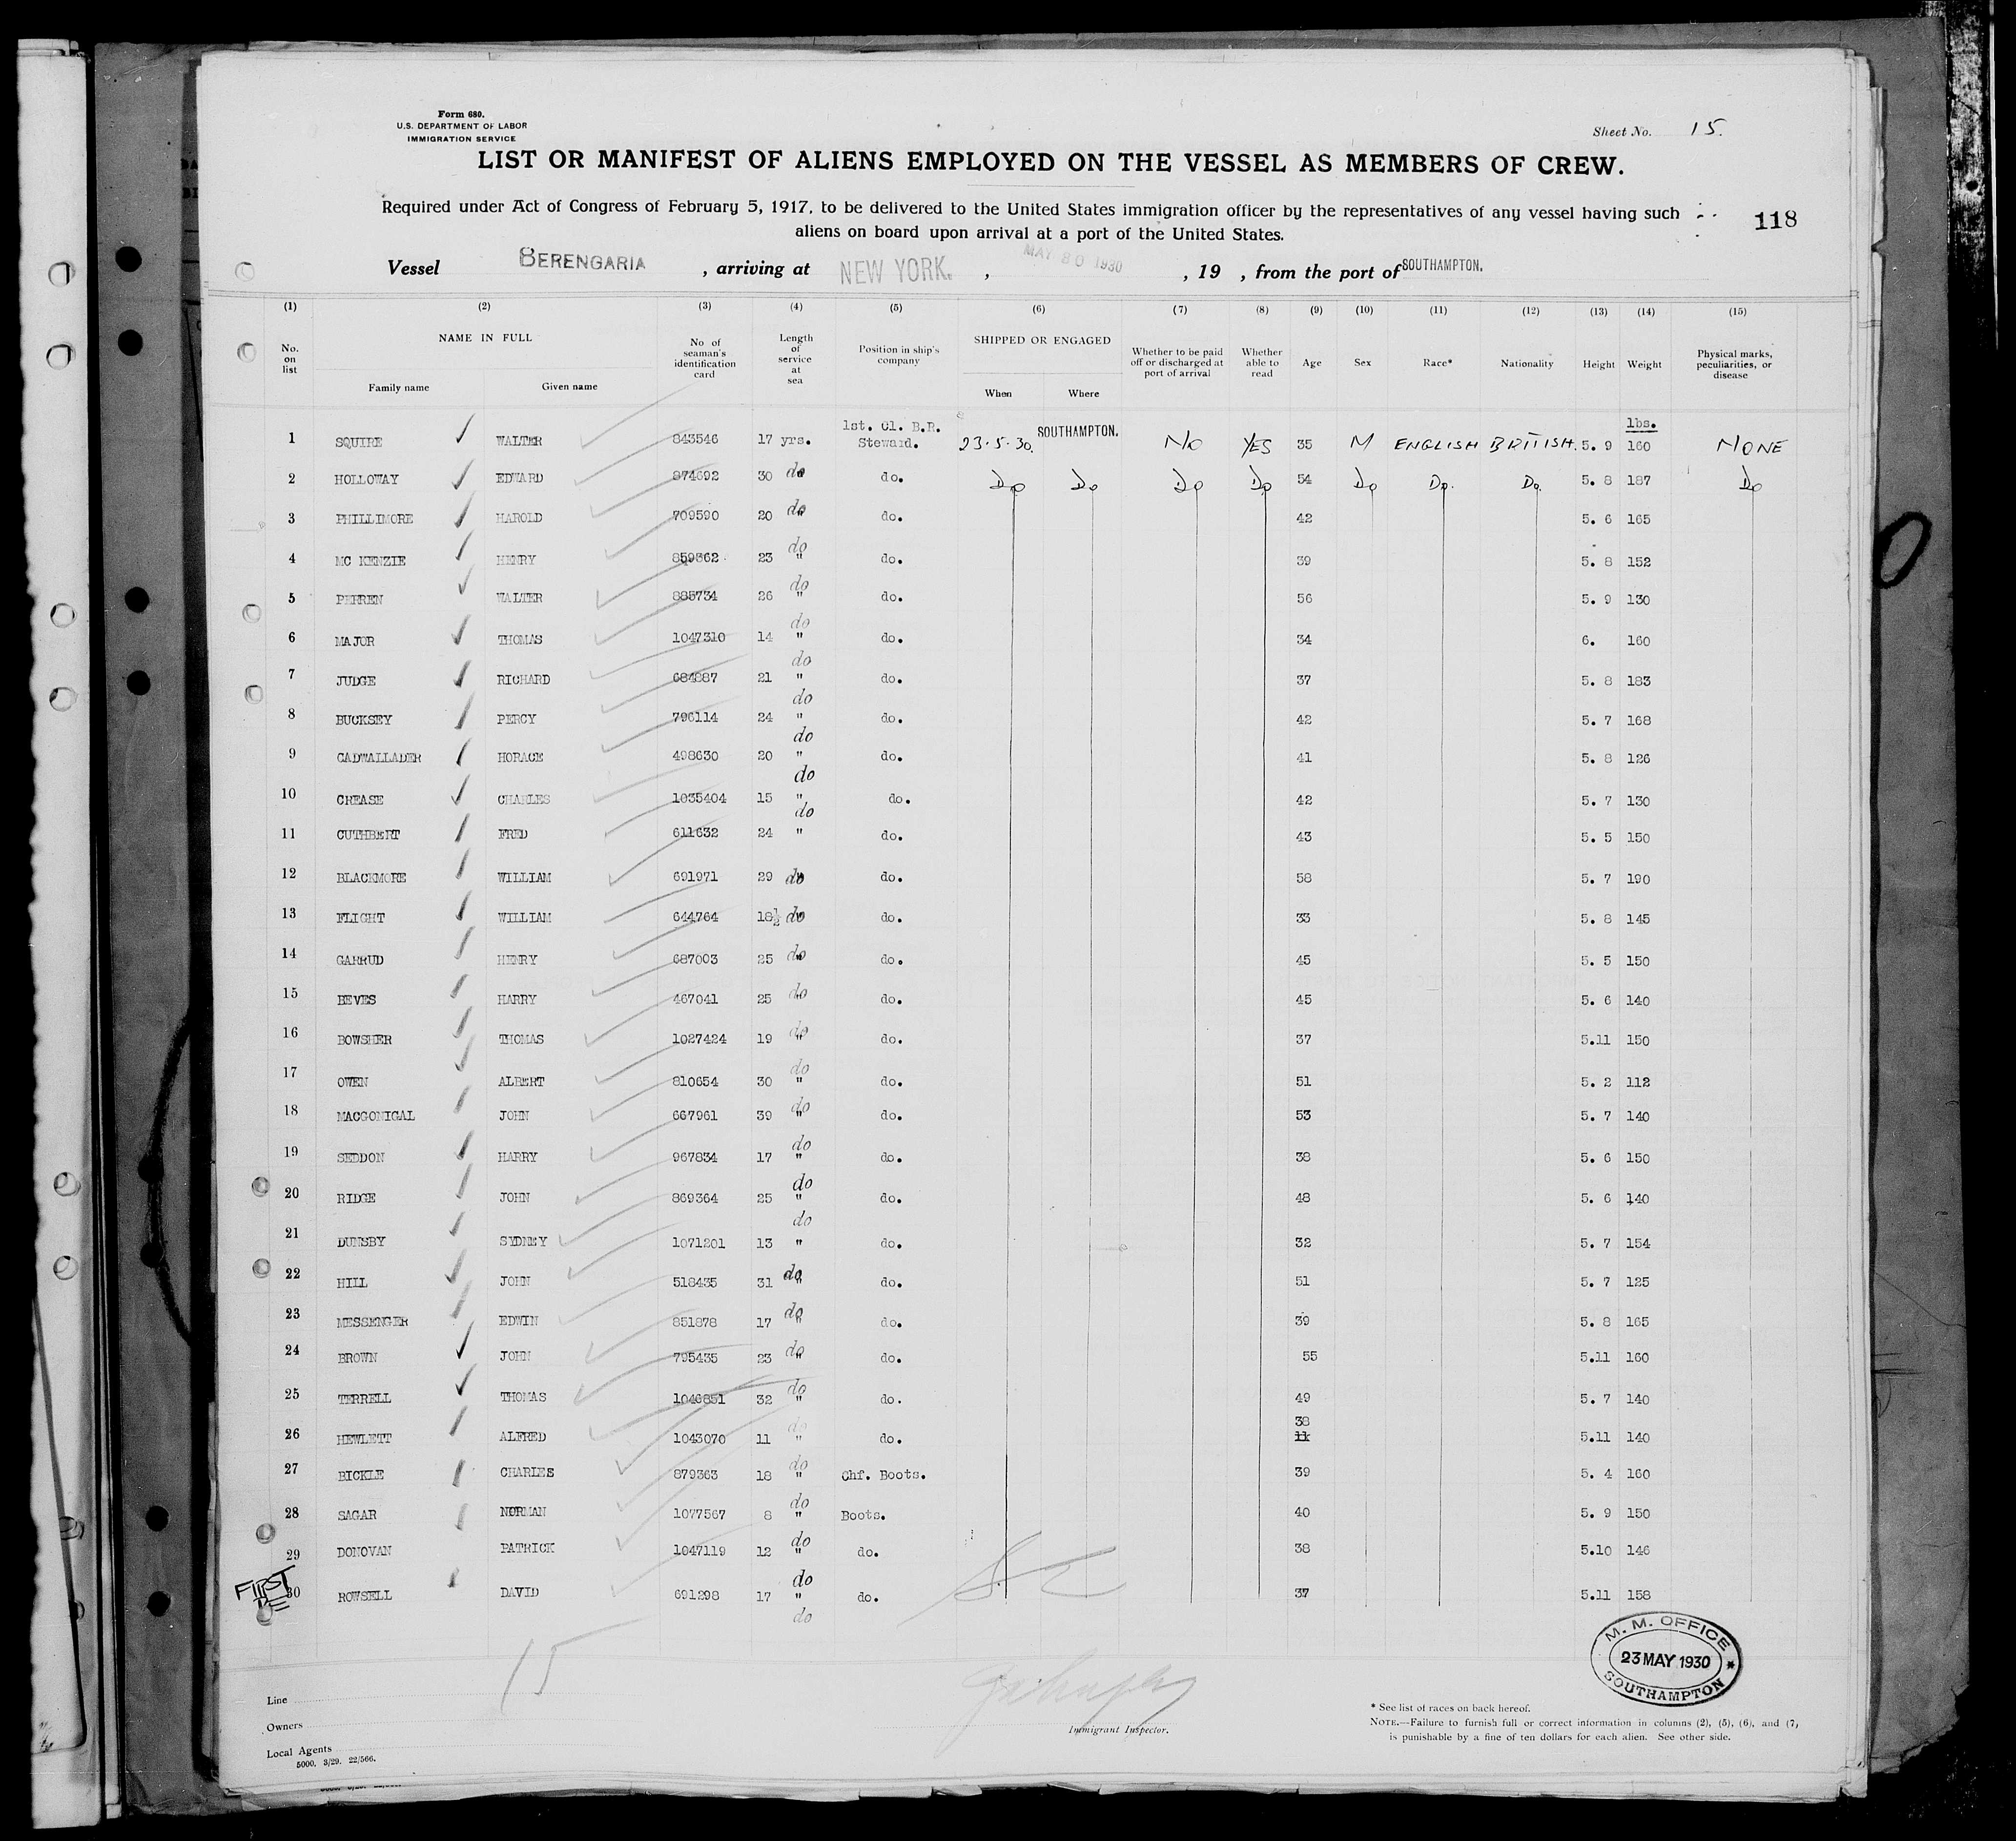 Form 680.
U.S. DEPARTMENT OF LABOR
IMMIGRATION SERVICE
Sheet No. 15.
LIST OR MANIFEST OF ALIENS EMPLOYED ON THE VESSEL AS MEMBERS OF CREW.
Required under Act of Congress of February 5, 1917, to be delivered to the United States immigration officer by the representatives of any vessel having such
aliens on board upon arrival at a port of the United States.
118
Vessel BERENGARIA, arriving at NEW YORK., MAY 30 1930, 19 , from the port of SOUTHAMPTON.
(1) (2) (3) (4) (5) (6) (7) (8) (9) (10) (11) (12) (13) (14) (15)
No. on list NAME IN FULL Family name Given name No of seaman's identification card Length of service at sea Position in ship's company SHIPPED OR ENGAGED When Where Whether to be paid off or discharged at port of arrival Whether able to read Age Sex Race* Nationality Height Weight Physical marks, peculiarities, or disease
1 SQUIRE WALTER 843546 17 yrs. 1st. Cl. B.R. Steward. 23.5.30. SOUTHAMPTON. NO YES 35 M ENGLISH BRITISH. 5. 9 lbs. 160 NONE
2 HOLLOWAY EDWARD 874692 30 do do. Do Do Do Do 54 Do Do. Do. 5. 8 187 Do
3 PHILLIMORE HAROLD 709590 20 do " do. 42 5. 6 165
4 MC KENZIE HENRY 859862 23 do " do. 39 5. 8 152
5 PERREN WALTER 885734 26 do " do. 56 5. 9 130
6 MAJOR THOMAS 1047310 14 do " do. 34 6. 160
7 JUDGE RICHARD 684887 21 do " do. 37 5. 8 183
8 BUCKSEY PERCY 796114 24 do " do. 42 5. 7 168
9 CADWALLADER HORACE 498630 20 do " do. 41 5. 8 126
10 CREASE CHARLES 1035404 15 do " do. 42 5. 7 130
11 CUTHBERT FRED 611632 24 do " do. 43 5. 5 150
12 BLACKMORE WILLIAM 691971 29 do " do. 58 5. 7 190
13 FLIGHT WILLIAM 644764 18½ do " do. 33 5. 8 145
14 GARRUD HENRY 687003 25 do " do. 45 5. 5 150
15 BEVES HARRY 467041 25 do " do. 45 5. 6 140
16 BOWSHER THOMAS 1027424 19 do " do. 37 5.11 150
17 OWEN ALBERT 810654 30 do " do. 51 5. 2 112
18 MACGONIGAL JOHN 667961 39 do " do. 53 5. 7 140
19 SEDDON HARRY 967834 17 do " do. 38 5. 6 150
20 RIDGE JOHN 869364 25 do " do. 48 5. 6 140
21 DUNSBY SYDNEY 1071201 13 do " do. 32 5. 7 154
22 HILL JOHN 518435 31 do " do. 51 5. 7 125
23 MESSENGER EDWIN 851878 17 do " do. 39 5. 8 165
24 BROWN JOHN 795435 23 do " do. 55 5.11 160
25 TERRELL THOMAS 1046851 32 do " do. 49 5. 7 140
26 HEWLETT ALFRED 1043070 11 do " do. 38 11 5.11 140
27 BICKLE CHARLES 879363 18 do " Chf. Boots. 39 5. 4 160
28 SAGAR NORMAN 1077567 8 do " Boots. 40 5. 9 150
29 DONOVAN PATRICK 1047119 12 do " do. 38 5.10 146
30 ROWSELL DAVID 691298 17 do " do. 37 5.11 158
do
FIRST
15
M. M. OFFICE
23 MAY 1930
SOUTHAMPTON
Line
Owners
Local Agents
5000. 3/29. 22/566.
Immigrant Inspector.
* See list of races on back hereof.
NOTE.—Failure to furnish full or correct information in columns (2), (5), (6), and (7)
is punishable by a fine of ten dollars for each alien. See other side.